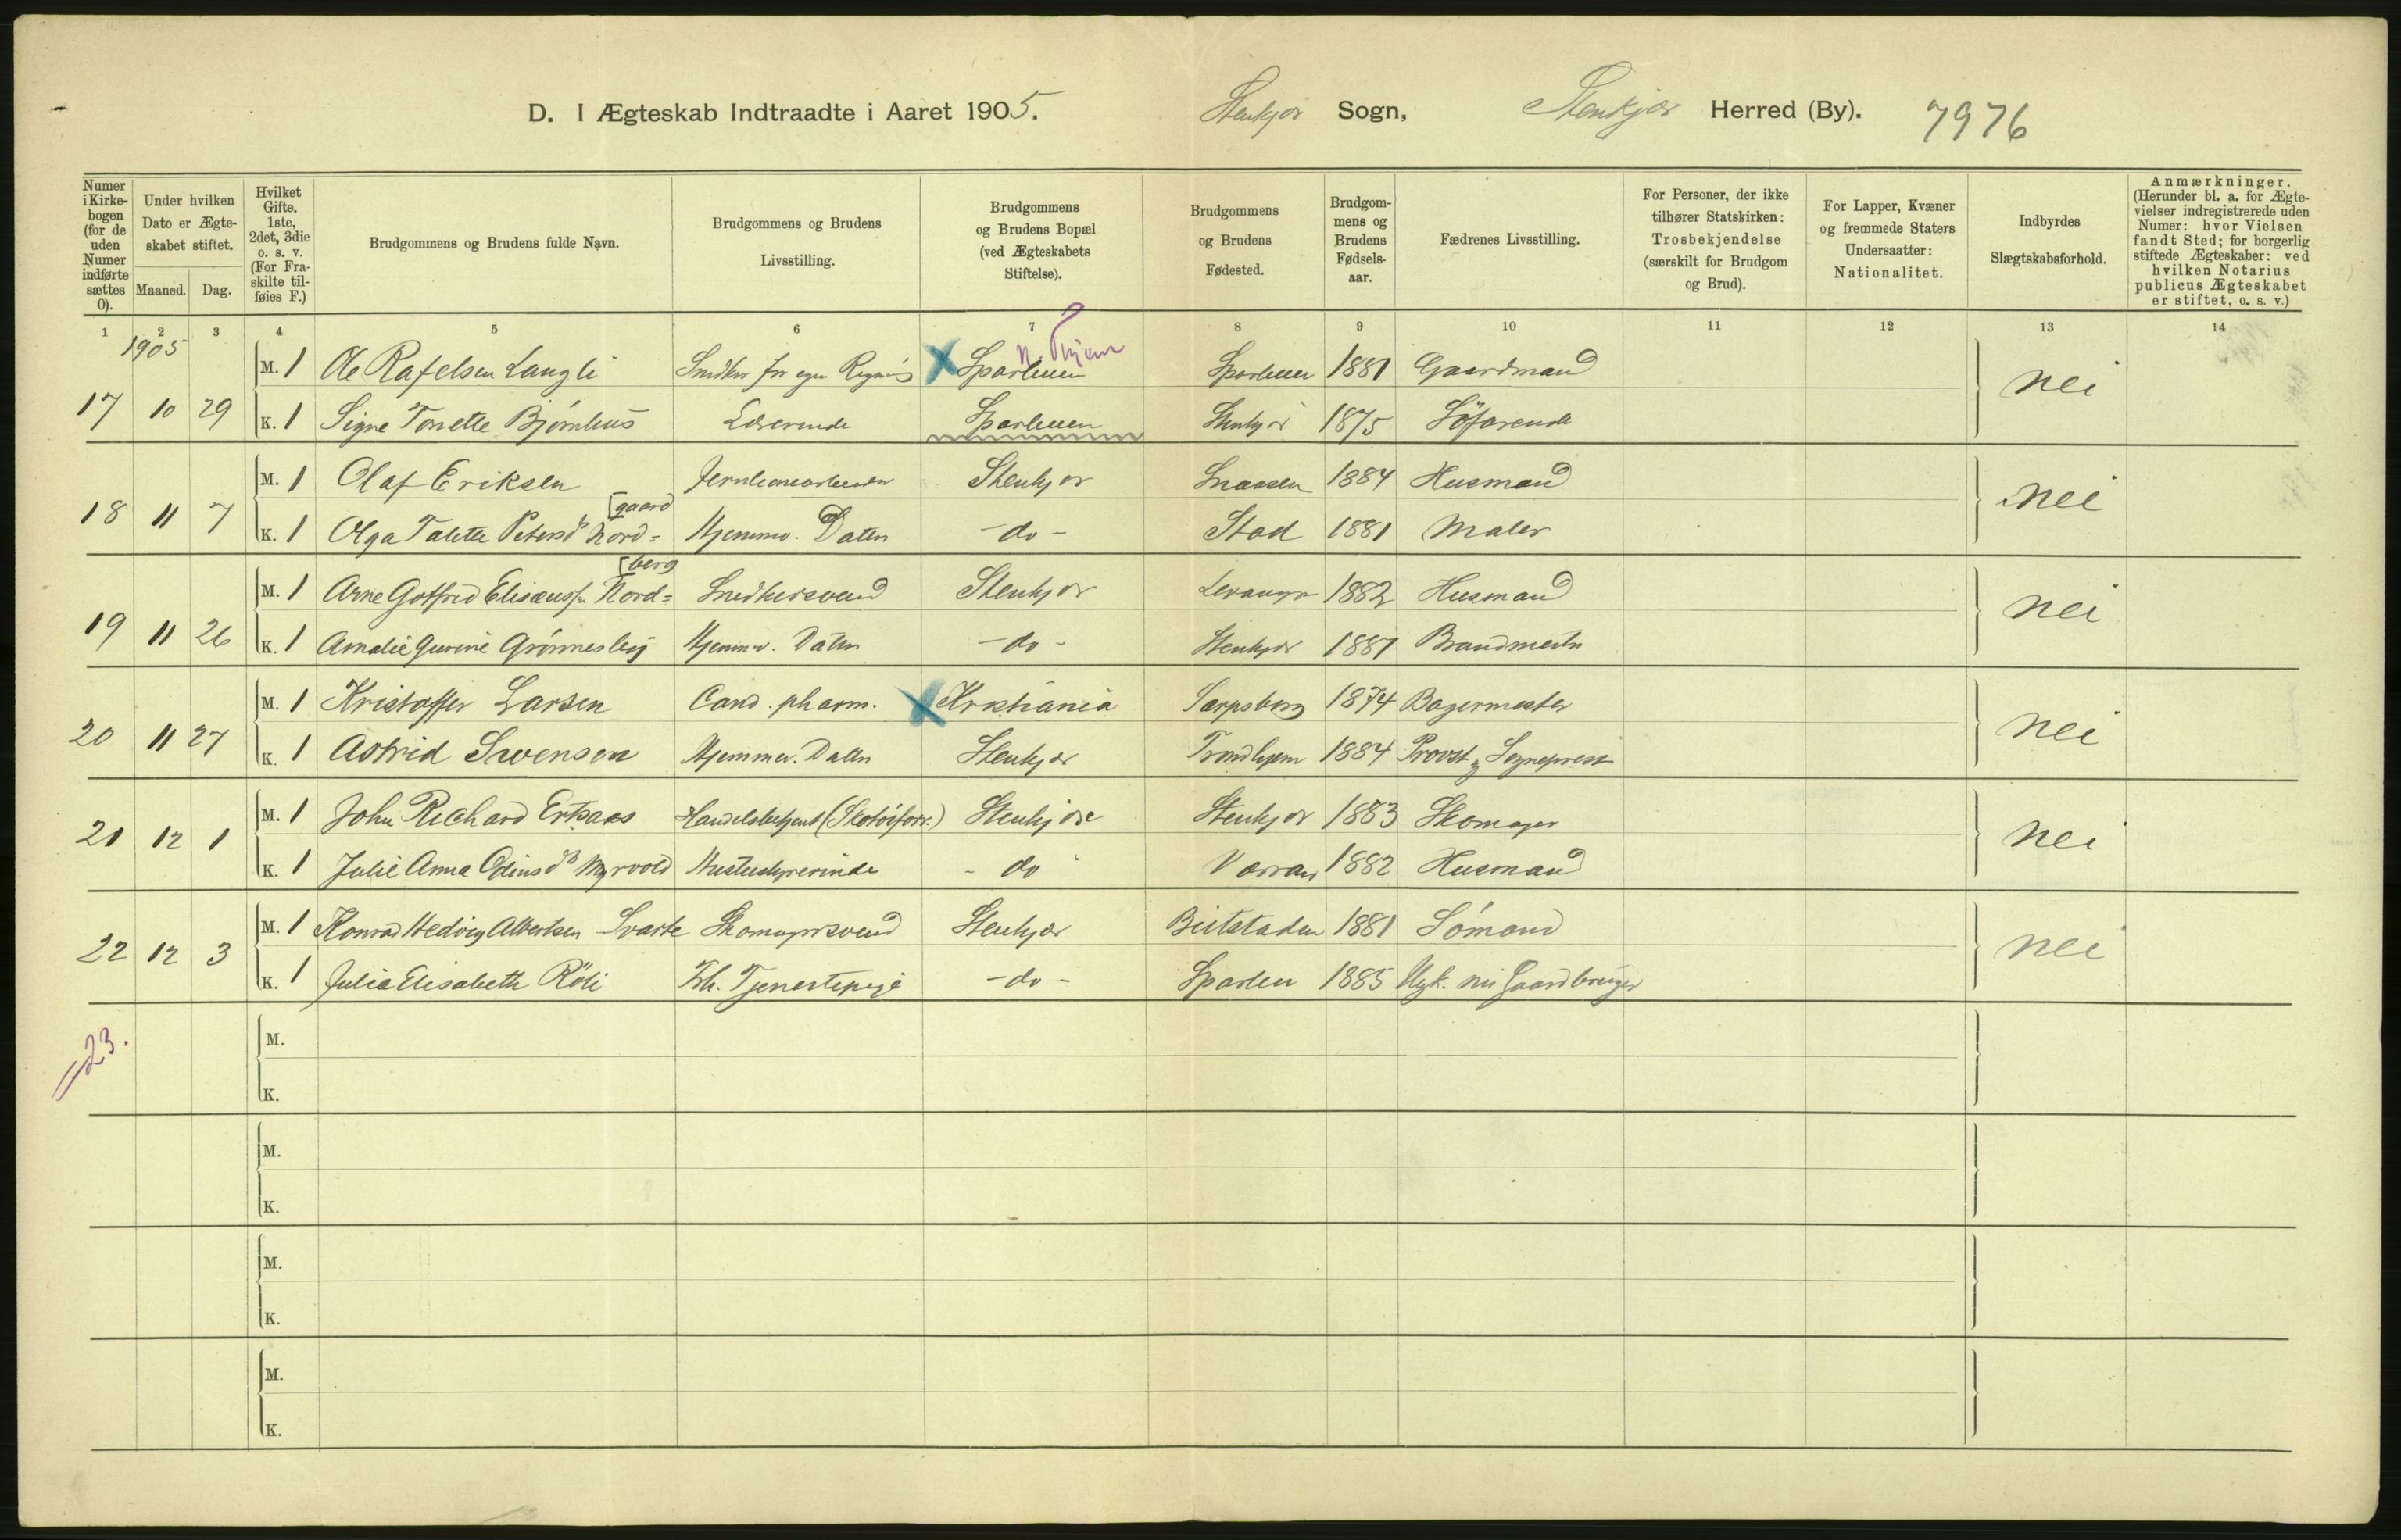 D. I Ægteskab Indtraadte i Aaret 1905. Stenkjær Sogn, Stenkjær Herred (By). 7976
Numer i Kirke-bogen (for de uden Numer indførte sættes 0).
Under hvilken Dato er Ægte-skabet stiftet.
Maaned. Dag.
Hvilket Gifte. 1ste, 2det, 3die o. s. v. (For Fra-skilte til-føies F.)
Brudgommens og Brudens fulde Navn.
Brudgommens og Brudens Livsstilling.
Brudgommens og Brudens Bopæl (ved Ægteskabets Stiftelse).
Brudgommens og Brudens Fødested.
Brudgom-mens og Brudens Fødsels-aar.
Fædrenes Livsstilling.
For Personer, der ikke tilhører Statskirken: Trosbekjendelse (særskilt for Brudgom og Brud).
For Lapper, Kvæner og fremmede Staters Undersaatter: Nationalitet.
Indbyrdes Slægtskabsforhold.
Anmærkninger. (Herunder bl. a. for Ægte-vielser indregistrerede uden Numer: hvor Vielsen fandt Sted; for borgerlig stiftede Ægteskaber: ved hvilken Notarius publicus Ægteskabet er stiftet, o. s. v.)
1 2 3 4 5 6 7 8 9 10 11 12 13 14
1905
N. Thjem
M. 1 Ole Rafelsen Langli Snedker for egen X Sparbuen Sparbuen 1881 Gaardmand nei
17 10 29 K. 1 Signe Tonette Bjørnhus Lærerinde Sparbuen Stenkjær 1875 Söfarende
M. 1 Olaf Eriksen Jernbanearbeider Stenkjær Snaasen 1884 Husmand nei
[gaard
18 11 7 K. 1 Olga Talette Petersd. Nord= Hjemmev. Datter - do - Stod 1881 Maler
[berg
M. 1 Arne Gotfred Elisæuss. Nord= Snedkersvend Stenkjær Levanger 1882 Husmand nei
19 11 26 K. 1 Amalie Gurine Grønnesby Hjemmev. Datter - do - Stenkjær 1881 Brandmester
M. 1 Kristoffer Larsen Cand. pharm. X Kristiania Sarpsborg 1874 Bagermester nei
20 11 27 K. 1 Astrid Svensen Hjemmev. Datter Stenkjær Trondhjem 1884 Provst og Sogneprest
M. 1 John Richard Ertsaas Handelsbetjent (Skotøiforr.) Stenkjær Stenkjær 1883 Skomager nei
21 12 1 K. 1 Julie Anna Odinsd. Myrvold Husbestyrerinde - do Værran 1882 Husmand
M. 1 Konrad Hedvig Albertsen Svarte Skomagersvend Stenkjær Beitstaden 1881 Sømand nei
22 12 3 K. 1 Julia Elisabeth Röli Fh. Tjenestepige - do - Sparbu 1885 Gaardbruger
23.
M.
K.
M.
K.
M.
K.
M.
K.